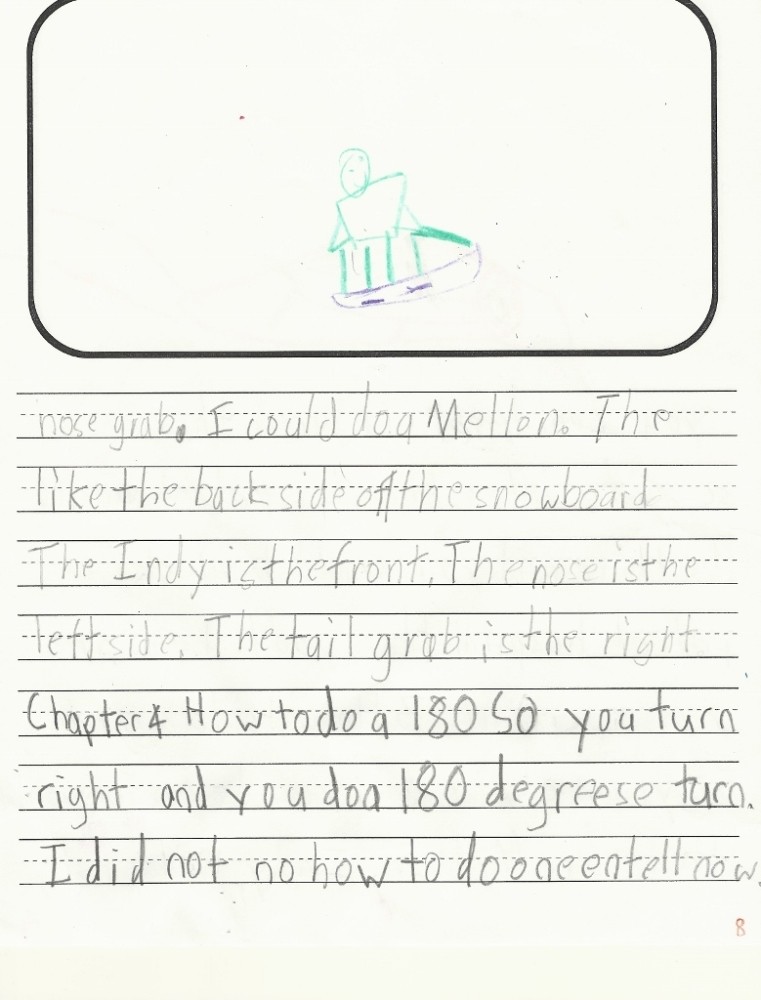 nose grab. I could do a Mellon. The
like the back side off the snowboard
The Indy is the front. The nose is the
left side. The tail grab is the right
Chapter 4 How to do a 180 So you turn
right and you do a 180 degreese turn.
I did not no how to do one entell now.
8